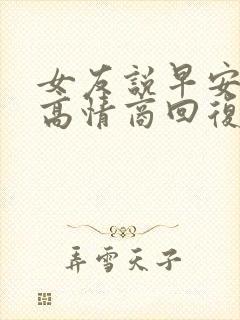 女友說早安
高情商回復
弄雪天子